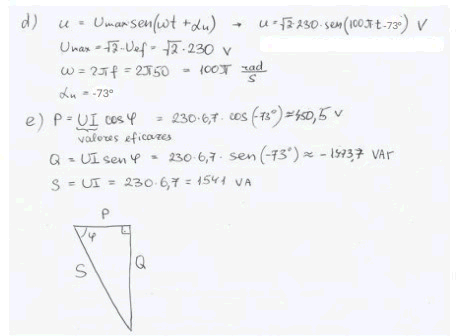 d) u = Umax sen(ωt + αu) → u = √2·230·sen(100πt-73°) V
Umax = √2·Uef = √2·230 V
ω = 2πf = 2π50 = 100π rad/s
αu = -73°
e) P = UI cos φ = 230·6,7·cos(-73°) ≈ 450,5 V
valores eficazes
Q = UI sen φ = 230·6,7·sen(-73°) ≈ -1473,7 VAr
S = UI = 230·6,7 = 1541 VA
P
φ
S Q